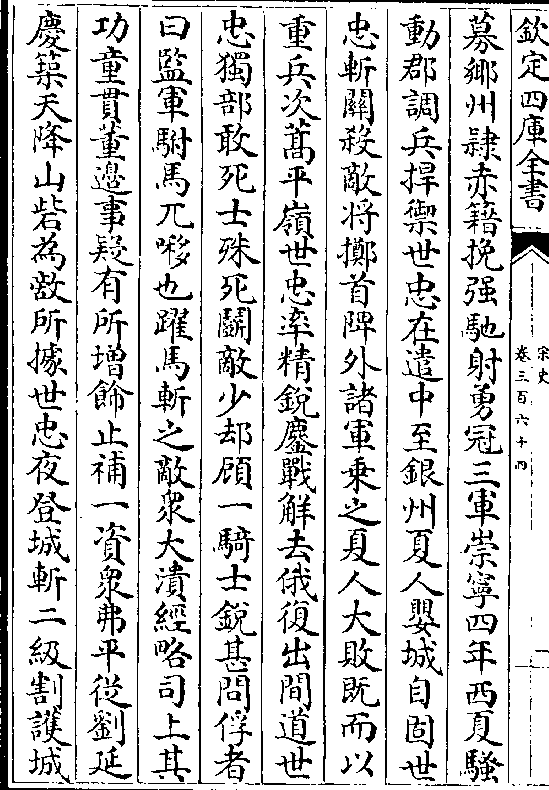 欽定四庫全書
宋史
卷三百六十四
一
募鄉州隷赤籍挽强馳射勇冠三軍崇寧四年西夏騷
動郡調兵捍禦世忠在遣中至銀州夏人嬰城自固世
忠斬關殺敵将擲首陴外諸軍乗之夏人大敗既而以
重兵次蒿平嶺世忠率精銳鏖戰解去俄復出間道世
忠獨部敢死士殊死鬭敵少却顧一騎士銳甚問俘者
曰監軍駙馬兀㖼也躍馬斬之敵衆大潰經略司上其
功童貫董邉事疑有所增飾止補一資衆弗平從劉延
慶築天降山砦為敵所據世忠夜登城斬二級割護城